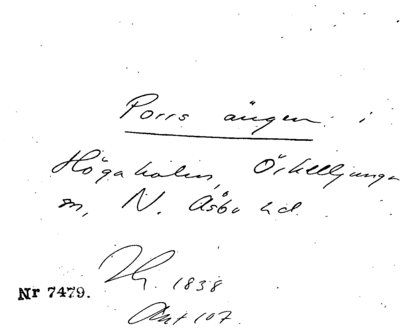 Porrs ängen i
Högaholm, Örkelljunga
sn, N. Åsbo hd
1838
Nr 7479.
Akt 107.